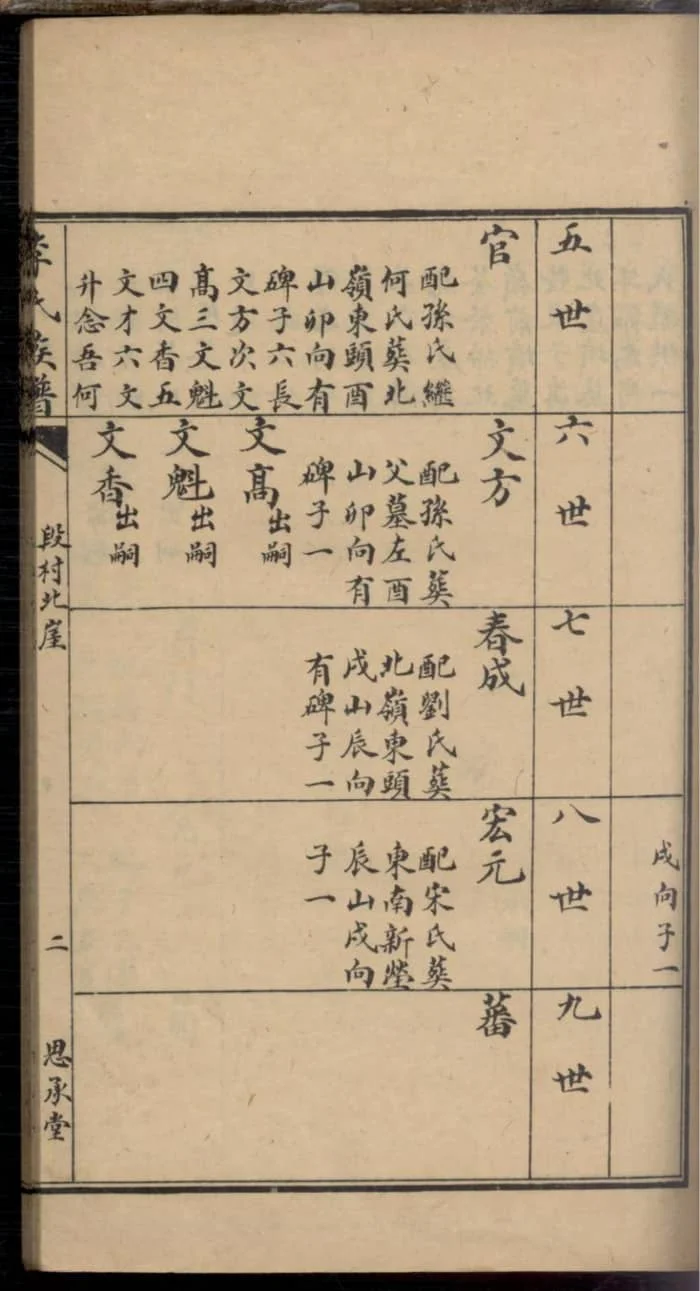 戌向子一
五世
六世
七世
八世
九世
官
配孫氏繼
何氏葬北
嶺東頭酉
山卯向有
碑子六長
文方次文
高三文魁
四文香五
文才六文
升念吾何
文方
配孫氏葬
父墓左酉
山卯向有
碑子一
文高出嗣
文魁出嗣
文香出嗣
春成
配劉氏葬
北嶺東頭
戌山辰向
有碑子一
宏元
配宋氏葬
東南新塋
辰山戌向
子一
蕃
李氏族譜
段村北崖
二
思承堂